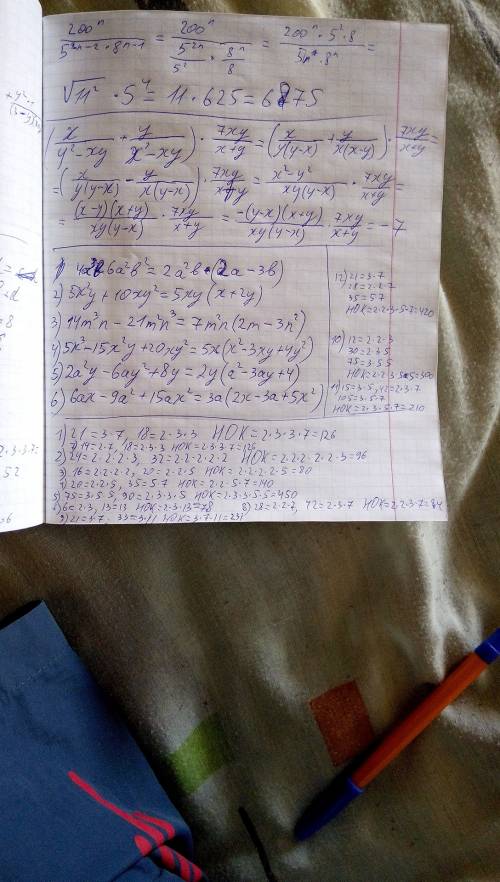 200ⁿ / (5²ⁿ⁻² · 8ⁿ⁻¹) = 200ⁿ / (5²ⁿ/5² · 8ⁿ/8) = 200ⁿ · 5² · 8 / (5²ⁿ · 8ⁿ) =
√11² · 5⁴ = 11 · 625 = 6875
(x/(y²-xy) + y/(x²-xy)) · 7xy/(x+y) = (x/(y(y-x)) + y/(x(x-y))) · 7xy/(x+y) =
= (x/(y(y-x)) - y/(x(y-x))) · 7xy/(x+y) = (x²-y²)/(xy(y-x)) · 7xy/(x+y) =
= (x-y)(x+y)/(xy(y-x)) · 7xy/(x+y) = -(y-x)(x+y)/(xy(y-x)) · 7xy/(x+y) = -7
1) 6a²b² = 2a²b (2a - 3b)
2) 5x²y + 10xy² = 5xy (x + 2y)
3) 14m³n² - 21m²n³ = 7m²n (2m - 3n²)
4) 5x³ - 15x²y + 20xy² = 5x (x² - 3xy + 4y²)
5) 2a²y - 6ay + 8y = 2y (a² - 3ay + 4)
6) 6ax - 9a² + 15ax² = 3a (2x - 3a + 5x²)
12) 21 = 3·7
28 = 2·2·7
35 = 5·7
НОК = 2·2·3·5·7 = 420
10) 12 = 2·2·3
30 = 2·3·5
75 = 3·5·5
НОК = 2·2·3·5·5 = 300
11) 15 = 3·5, 42 = 2·3·7
105 = 3·5·7
НОК = 2·3·5·7 = 210
1) 21 = 3·7, 18 = 2·3·3 НОК = 2·3·3·7 = 126
7) 14 = 2·7, 18 = 2·3·3 НОК = 2·3·3·7 = 126
2) 24 = 2·2·2·3, 32 = 2·2·2·2·2 НОК = 2·2·2·2·2·3 = 96
3) 16 = 2·2·2·2, 20 = 2·2·5 НОК = 2·2·2·2·5 = 80
4) 20 = 2·2·5, 35 = 5·7 НОК = 2·2·5·7 = 140
5) 75 = 3·5·5, 90 = 2·3·3·5 НОК = 2·3·3·5·5 = 450
6) 6 = 2·3, 13 = 13 НОК = 2·3·13 = 78 8) 28 = 2·2·7, 42 = 2·3·7 НОК = 2·2·3·7 = 84
9) 21 = 3·7 33 = 3·11 НОК = 3·7·11 = 231